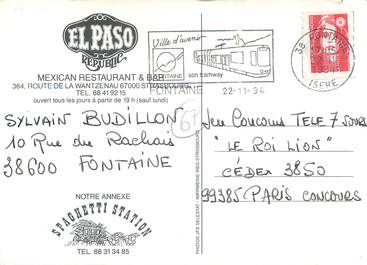 EL PASO
REPUBLIC
MEXICAN RESTAURANT & BAR
364, ROUTE DE LA WANTZENAU 67000 STRASBOURG
TEL. 88 41 92 15
ouvert tous les jours à partir de 19 h (sauf lundi)
Ville d'avenir
FONTAINE
son tramway
FONTAINE
22-11-94
38
ISERE
SYLVAIN BUDILLON
10 Rue du Rachais
38600 FONTAINE
67
Jeu Concours TELE 7 JOURS
"LE ROI LION"
CÉDEX 3850
99385 PARIS CONCOURS
NOTRE ANNEXE
SPAGHETTI STATION
TEL. 88 31 34 85